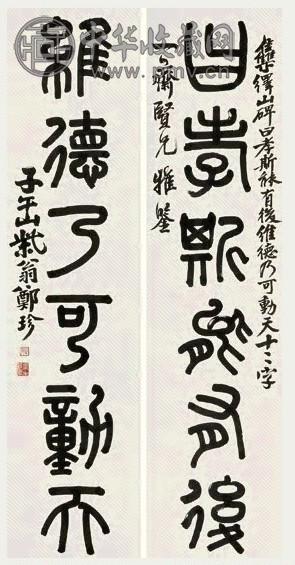 中华收藏网
集繹山碑曰孝斯能有後維德乃可動天十二字
曰孝斯能有後
齋賢兄 雅鑒
維德乃可動天
子午山柴翁鄭珍